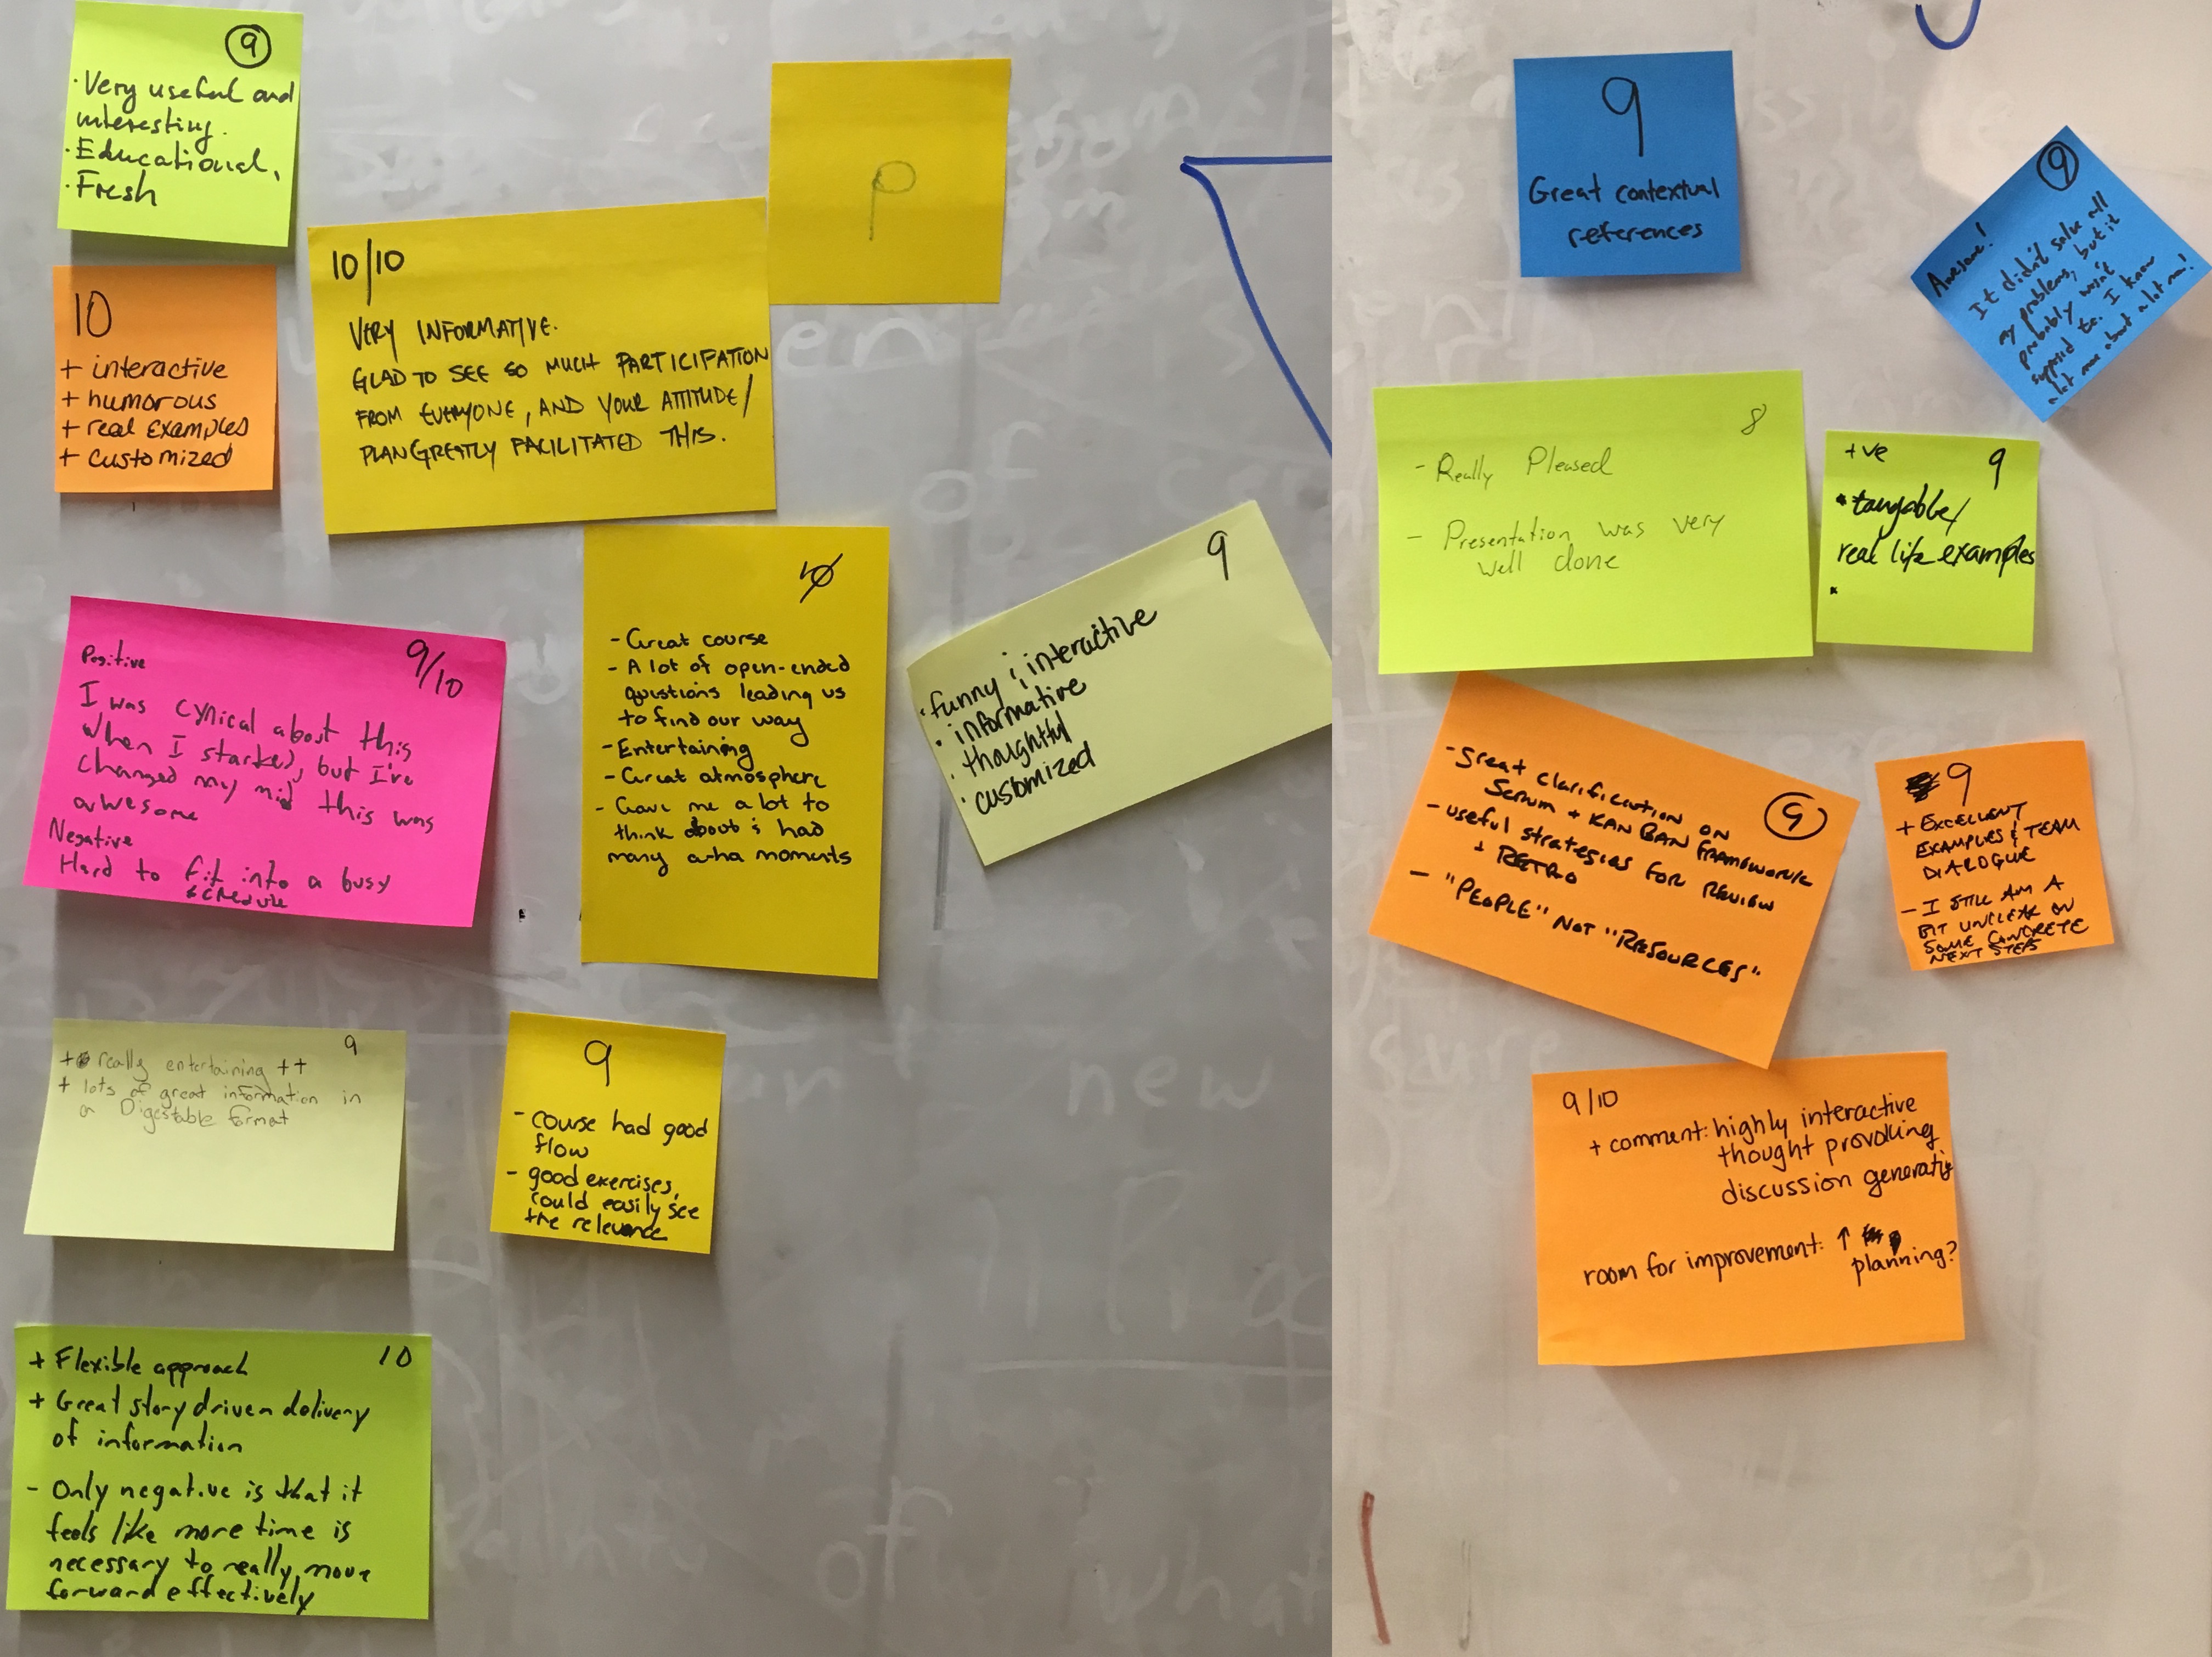 9
· Very useful and
interesting.
· Educational,
· Fresh
10
+ interactive
+ humorous
+ real examples
+ customized
10/10
VERY INFORMATIVE.
GLAD TO SEE SO MUCH PARTICIPATION
FROM EVERYONE, AND YOUR ATTITUDE/
PLAN GREATLY FACILITATED THIS.
P
9/10
Positive
I was cynical about this
when I started, but I've
changed my mid this was
awesome
Negative
Hard to fit into a busy
schedule
10
- Great course
- A lot of open-ended
questions leading us
to find our way
- Entertaining
- Great atmosphere
- Gave me a lot to
think about & had
many a-ha moments
9
· funny & interactive
· informative
· thoughtful
· customized
9
+ really entertaining ++
+ lots of great information in
a Digestable format
9
- course had good
flow
- good exercises,
could easily see
the relevance
10
+ Flexible approach
+ Great story driven delivery
of information
- Only negative is that it
feels like more time is
necessary to really move
forward effectively
9
Great contextual
references
9
Awesome!
It didn't solve all
my problems, but it
probably wasn't
supposed to. I know
a lot more about a lot now!
8
- Really Pleased
- Presentation was very
well done
+ve 9
• tangable/
real life examples
•
9
- Great clarification on
Scrum + KANBAN FRAMEWORK
- useful strategies for REVIEW
+ RETRO
- "PEOPLE" NOT "RESOURCES"
9
+ EXCELLENT
EXAMPLES & TEAM
DIALOGUE
- I STILL AM A
BIT UNCLEAR ON
SOME CONCRETE
NEXT STEPS
9/10
+ comment: highly interactive
thought provoking
discussion generatig
room for improvement: ↑
planning?
new
of what